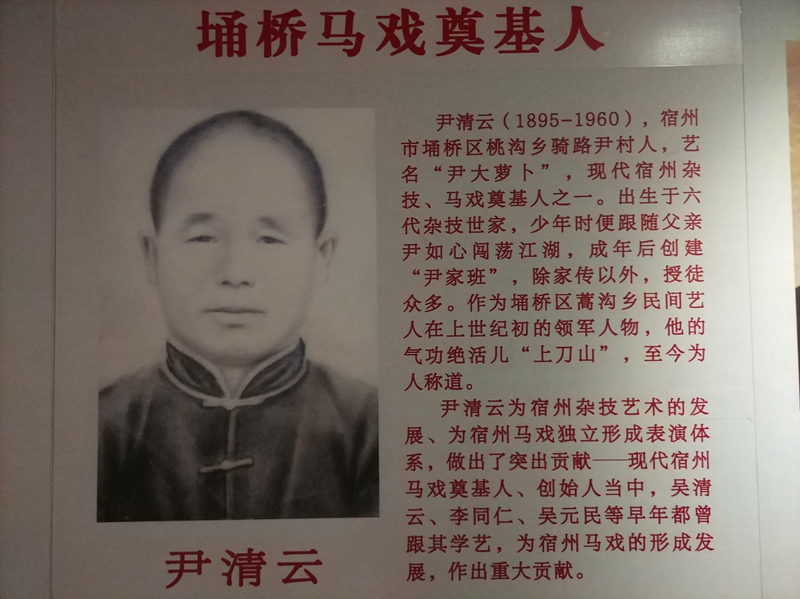 埇桥马戏奠基人
尹清云（1895-1960），宿州
市埇桥区桃沟乡骑路尹村人，艺
名“尹大萝卜”，现代宿州杂
技、马戏奠基人之一。出生于六
代杂技世家，少年时便跟随父亲
尹如心闯荡江湖，成年后创建
“尹家班”，除家传以外，授徒
众多。作为埇桥区蒿沟乡民间艺
人在上世纪初的领军人物，他的
气功绝活儿“上刀山”，至今为
人称道。
尹清云为宿州杂技艺术的发
展、为宿州马戏独立形成表演体
系，做出了突出贡献——现代宿州
马戏奠基人、创始人当中，吴清
云、李同仁、吴元民等早年都曾
跟其学艺，为宿州马戏的形成发
展，作出重大贡献。
尹清云